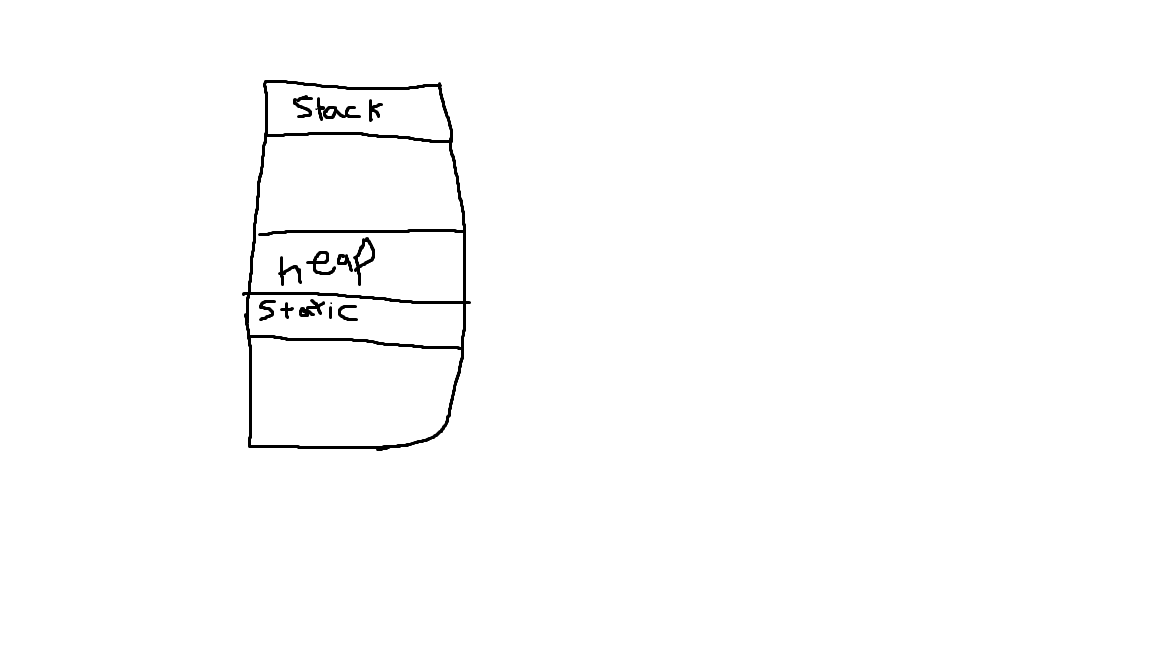 Stack
heap
Static